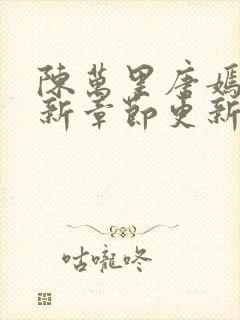 陳萬里唐嫣
新章節更新
咕嚨咚